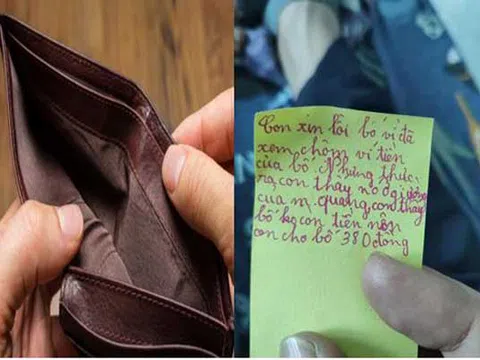 Con xin lỗi bố vì đã
xem chộm ví tiền
của bố. Nhưng thực
ra, con thấy nó
của m. quang, con thấy
bố ko còn tiền nên
con cho bố 380 đồng